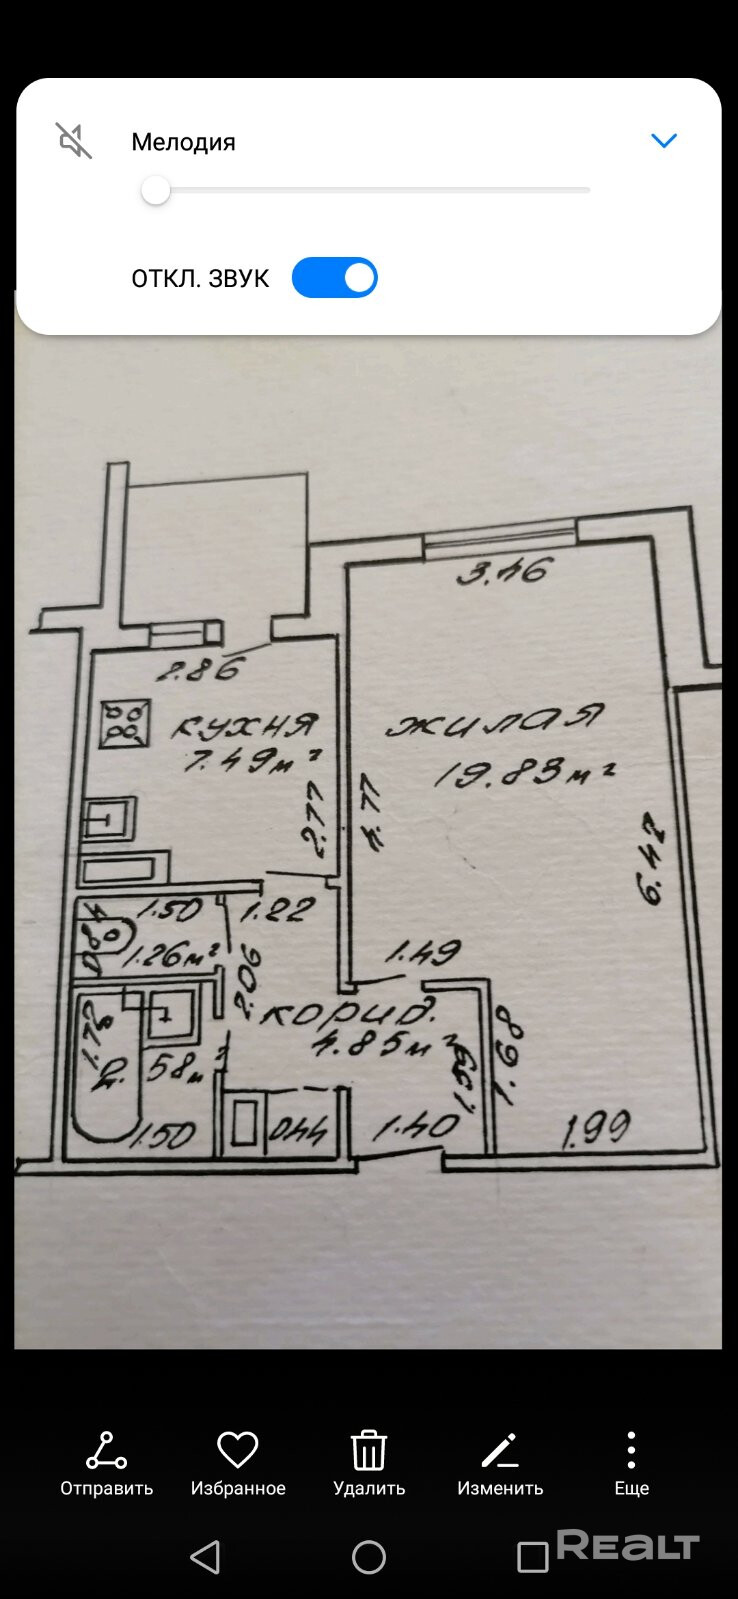 Мелодия
ОТКЛ. ЗВУК
3.46
2.86
кухня
7.49м²
жилая
19.83м²
2.77
4.77
6.42
1.50
1.22
0.84
1.26м²
2.06
1.49
корид.
4.85м²
1.72
58м²
1.99
1.68
1.50
0.44
1.40
1.99
Отправить
Избранное
Удалить
Изменить
Еще
REALT